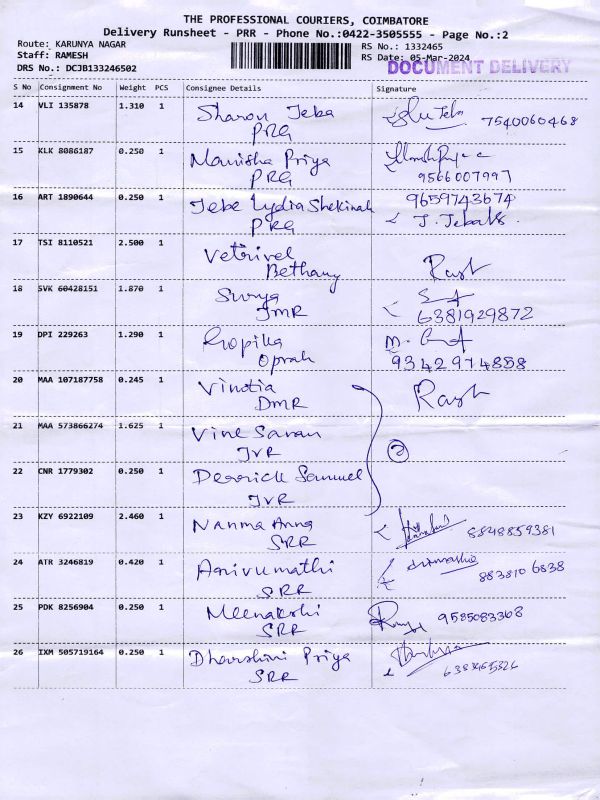 THE PROFESSIONAL COURIERS, COIMBATORE
Delivery Runsheet - PRR - Phone No.:0422-3505555 - Page No.:2
Route: KARUNYA NAGAR
RS No.: 1332465
Staff: RAMESH
RS Date: 05-Mar-2024
DRS No.: DCJB133246502
DOCUMENT DELIVERY
S No Consignment No Weight PCS Consignee Details Signature
14 VLI 135878 1.310 1 Sharon Jeba
PRG 7540060468
15 KLK 8086187 0.250 1 Manisha Priya
PRG 9566007997
16 ART 1890644 0.250 1 Jebe Lydia Shekinah 9659743674
PRG J. Jeba
17 TSI 8110521 2.500 1 Vetrivel
Bethany
18 SVK 60428151 1.870 1 Surya
JMR 6381929872
19 DPI 229263 1.290 1 Gopika
Oprah 9342974858
20 MAA 107187758 0.245 1 Vinotia
DMR
21 MAA 573866274 1.625 1 Vine Saran
JVR
22 CNR 1779302 0.250 1 Derrick Samuel
JVR
23 KZY 6922109 2.460 1 Nanma Anna
SRR 8848859381
24 ATR 3246819 0.420 1 Arivumathi
SRR 883810 6838
25 PDK 8256904 0.250 1 Meenakshi 9585083368
SRR
26 IXM 505719164 0.250 1 Dharshini Priya
SRR